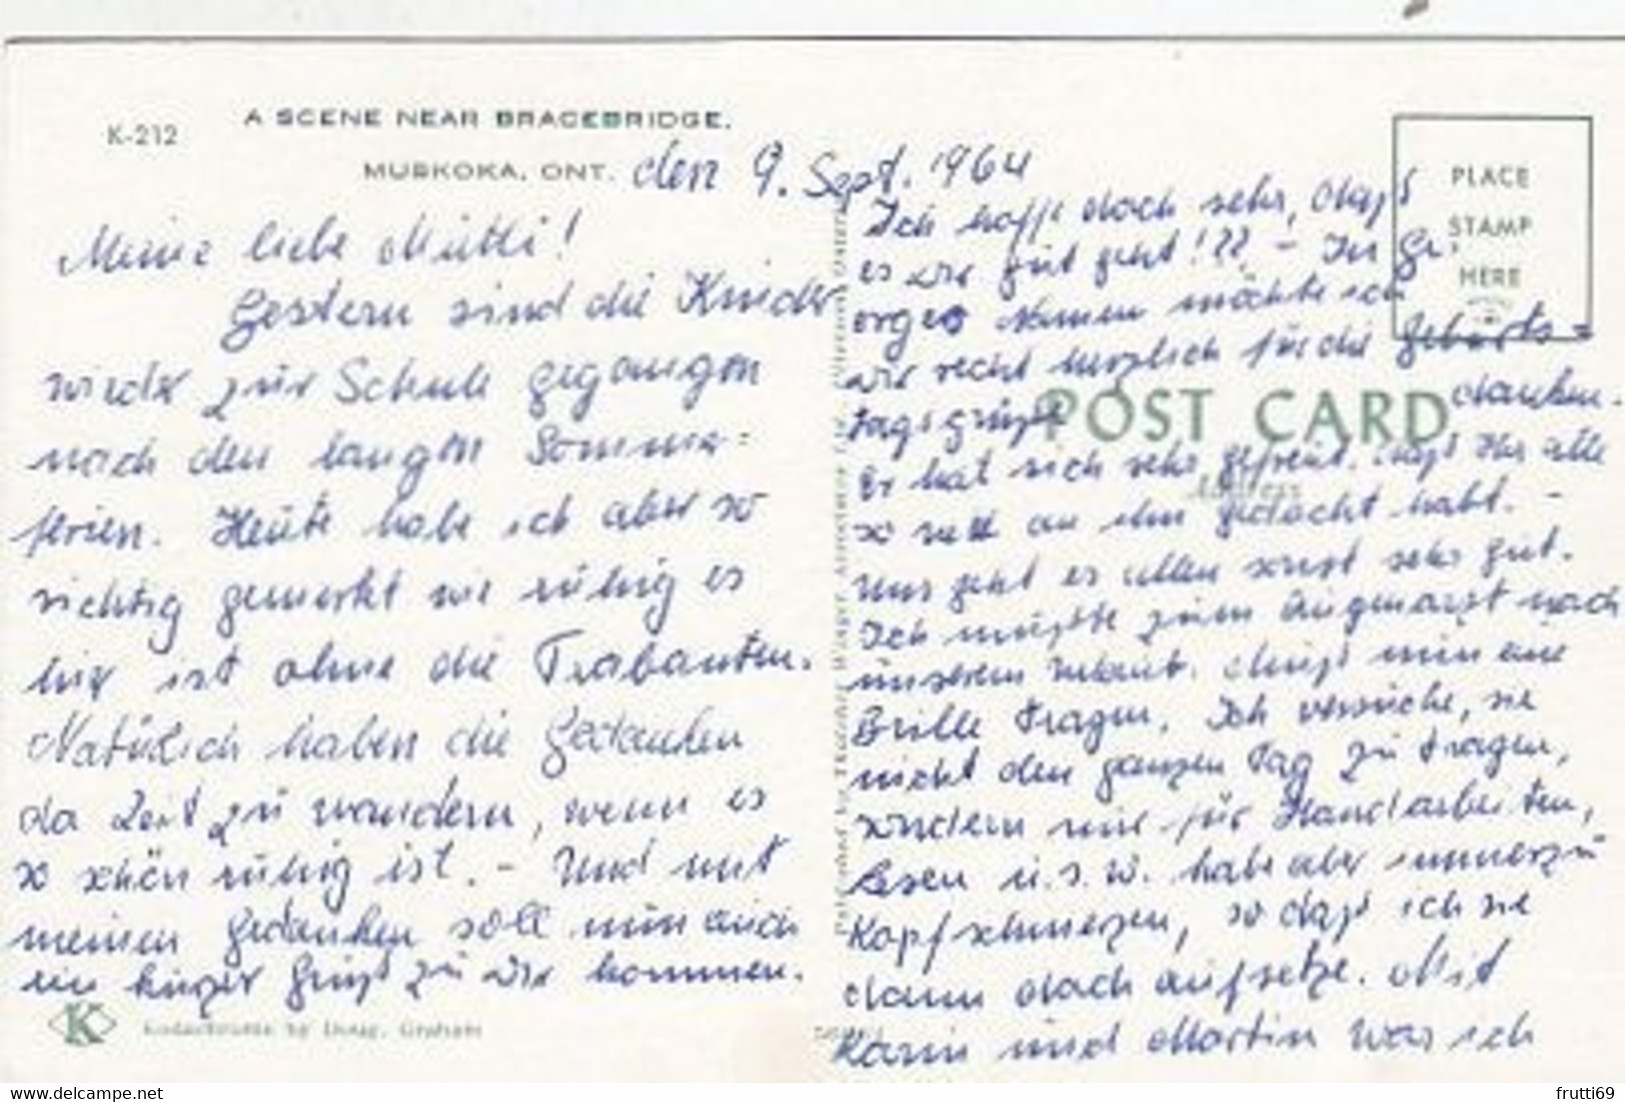 K-212
A SCENE NEAR BRACEBRIDGE,
MUSKOKA, ONT.
den 9. Sept. 1964
Meine liebe Mutti!
Gestern sind die Kinder
wieder zur Schule gegangen
nach den langen Sommer-
ferien. Heute habe ich aber so
richtig gemerkt wie ruhig es
hier ist ohne die Trabanten.
Natürlich haben die Gedanken
da Zeit zu wandern, wenn es
so schön ruhig ist. - Und mit
meinen Gedanken soll nun auch
ein kurzer Gruß zu Dir kommen.
K
Kodachrome by Doug. Graham
PLACE
STAMP
HERE
POST CARD
Address
Ich hoffe doch sehr, daß
es Dir gut geht!?? - In Ge-
orges Namen möchte ich
Dir recht herzlich für die Geburts=
tagsgrüße danken.
Er hat sich sehr gefreut, daß Ihr alle
so nett an ihn gedacht habt. -
Uns geht es allen sonst sehr gut.
Ich mußte zum Augenarzt nach
unserem Urlaub. Muß nun eine
Brille tragen. Ich versuche, sie
nicht den ganzen Tag zu tragen,
sondern nur für Handarbeiten,
Lesen u.s.w. habe aber immerzu
Kopfschmerzen, so daß ich sie
dann doch aufsetze. Mit
Karin und Martin war ich
www.delcampe.net
frutti69